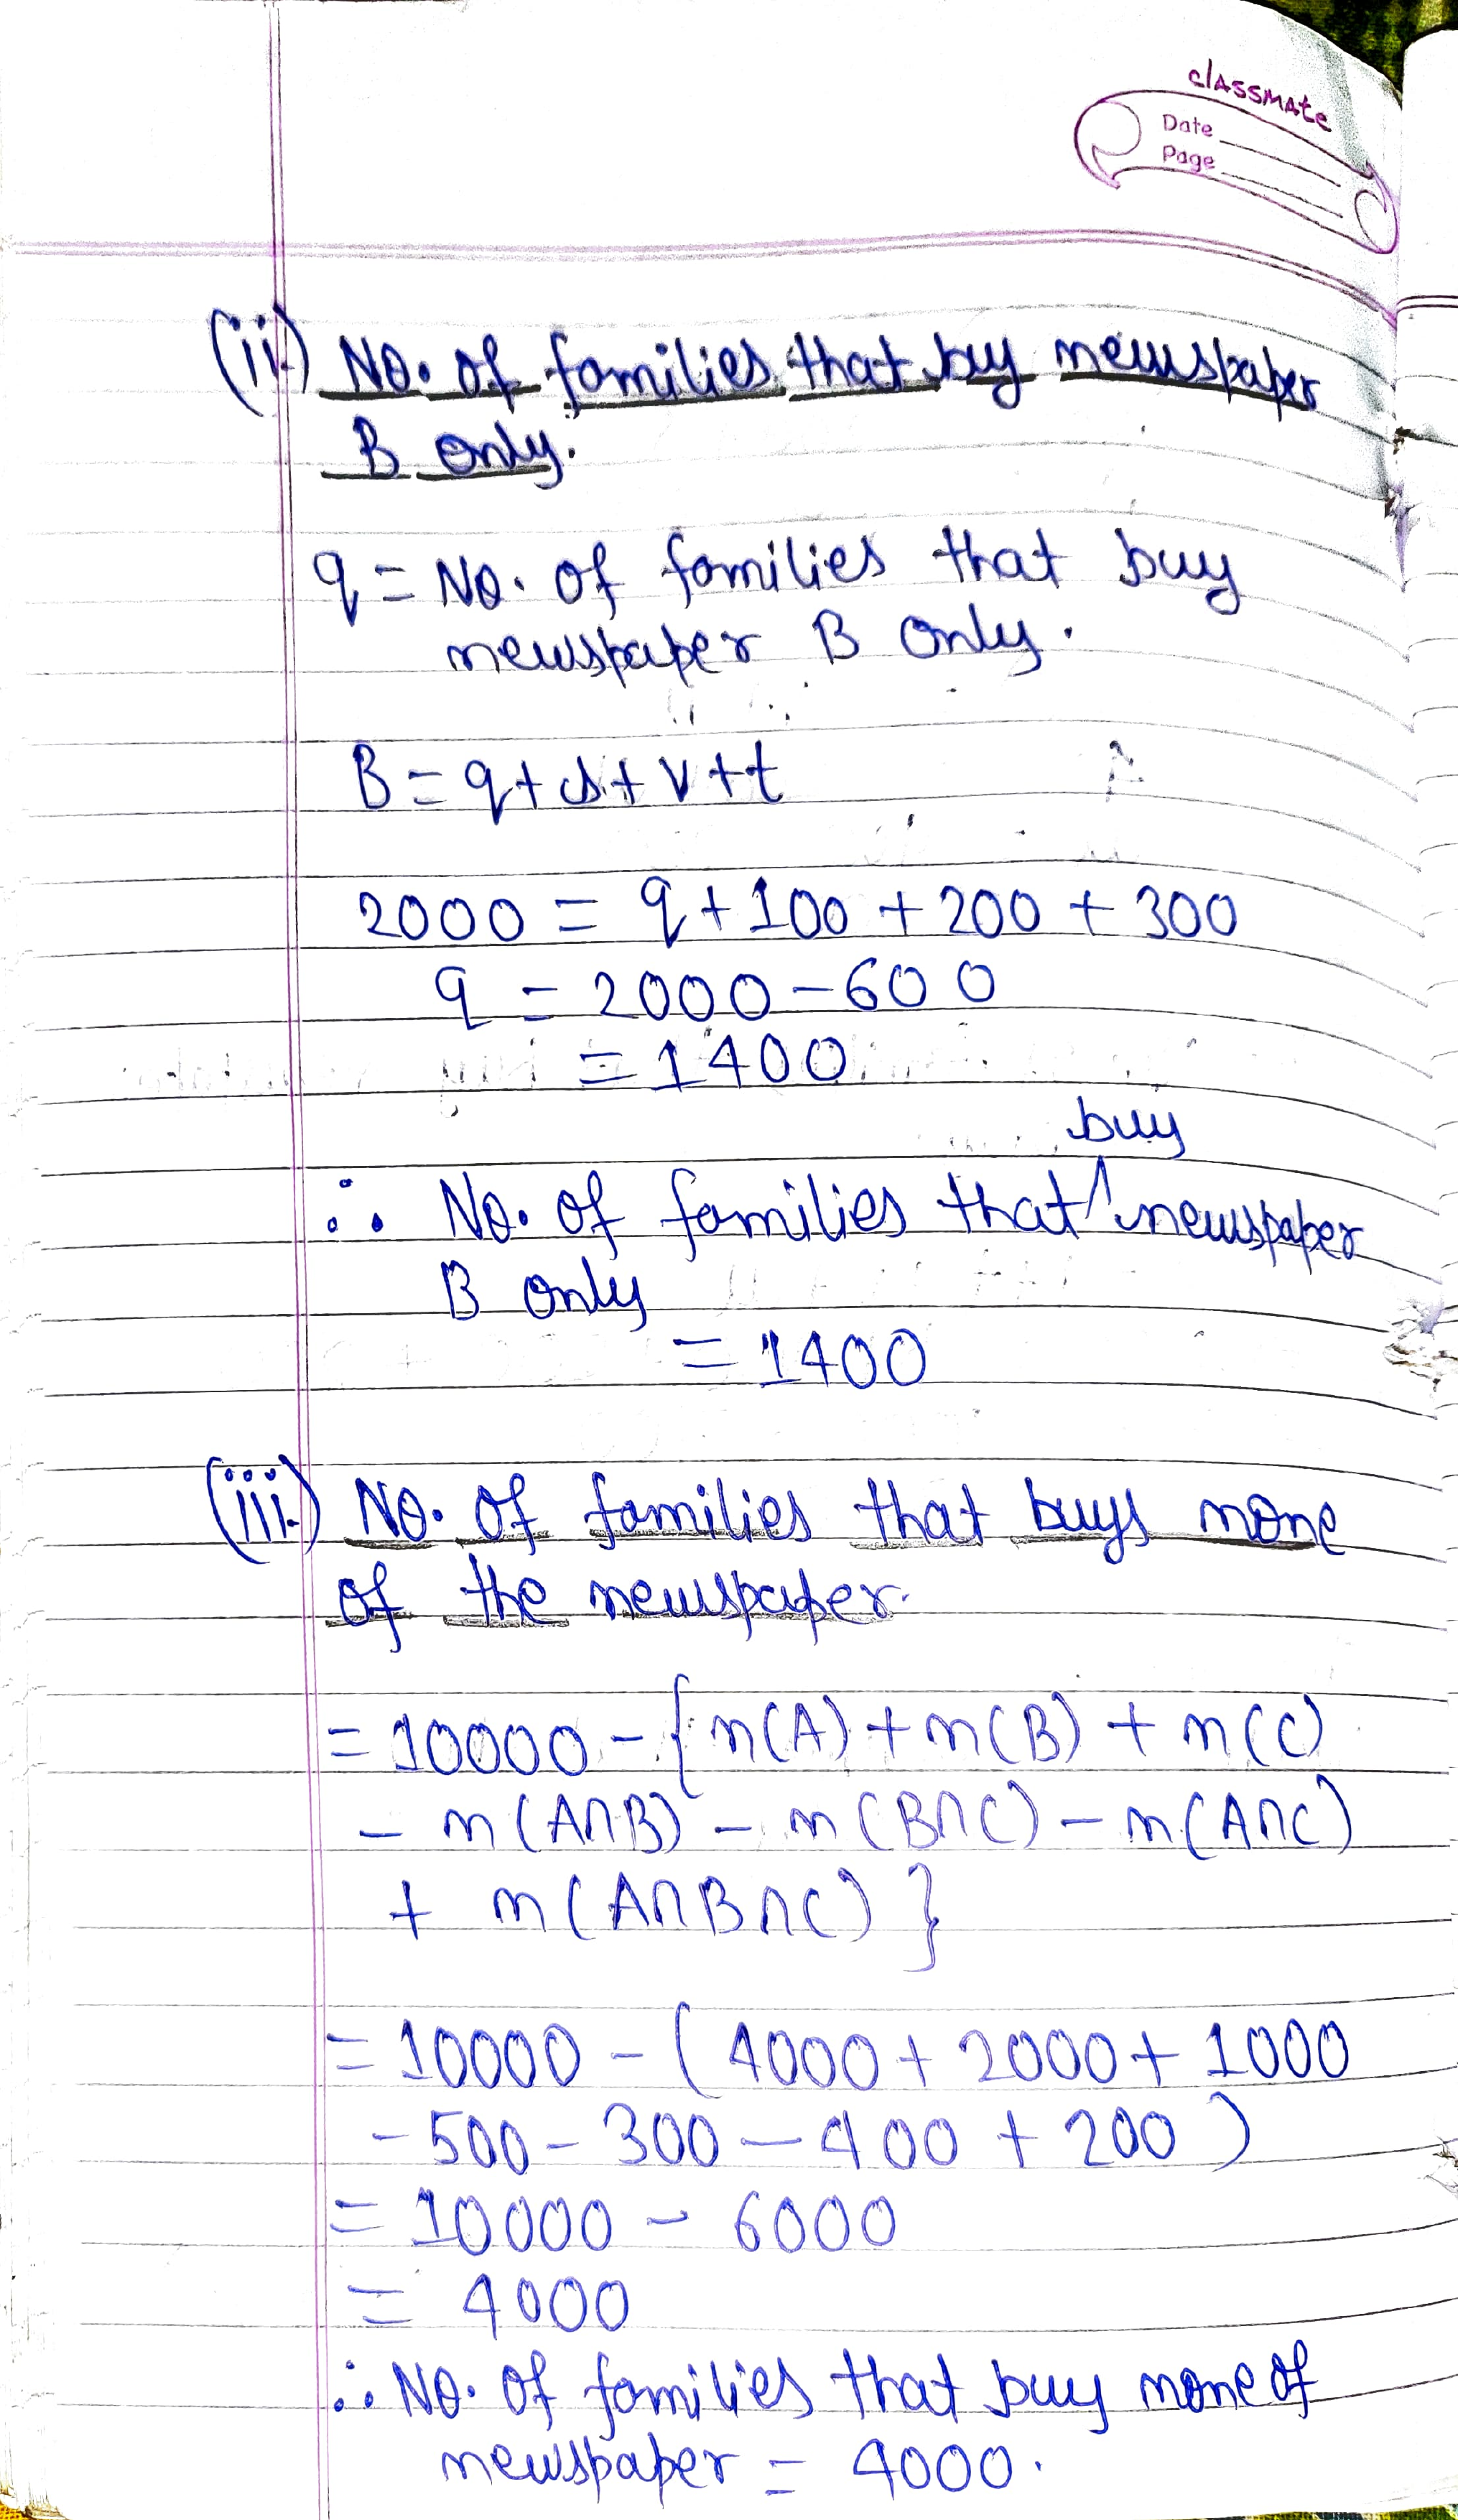 classmate
Date
Page
(ii) No. of families that buy newspaper
B only.
q = No. of families that buy
newspaper B only.
B = q + s + v + t
2000 = q + 100 + 200 + 300
q = 2000 - 600
= 1400
buy
∴ No. of families that ^ newspaper
B only
= 1400
(iii) No. of families that buys none
of the newspaper.
= 10000 - { n(A) + n(B) + n(C)
- n(A∩B) - n(B∩C) - n(A∩C)
+ n(A∩B∩C) }
= 10000 - ( 4000 + 2000 + 1000
- 500 - 300 - 400 + 200 )
= 10000 - 6000
= 4000
∴ No. of families that buy none of
newspaper = 4000.